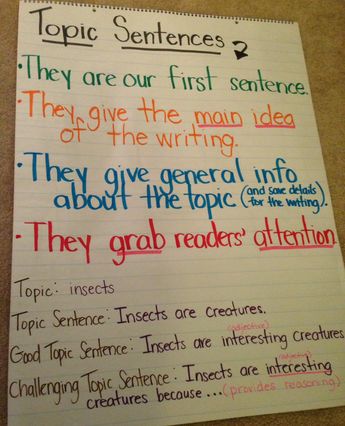 Topic Sentences
• They are our first sentence.
• They give the main idea
of the writing.
• They give general info
about the topic (and save details
for the writing).
• They grab readers' attention.
Topic: insects
Topic Sentence: Insects are creatures.
(adjective)
Good Topic Sentence: Insects are interesting creatures
(adjective)
Challenging Topic Sentence: Insects are interesting
creatures because ... (provides reasoning)